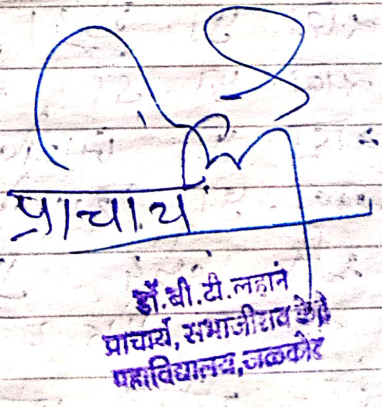 प्राचार्य
डॉ.बी.टी.लहाने
प्राचार्य, संभाजीराव केंद्रे
महाविद्यालय, जळकोट